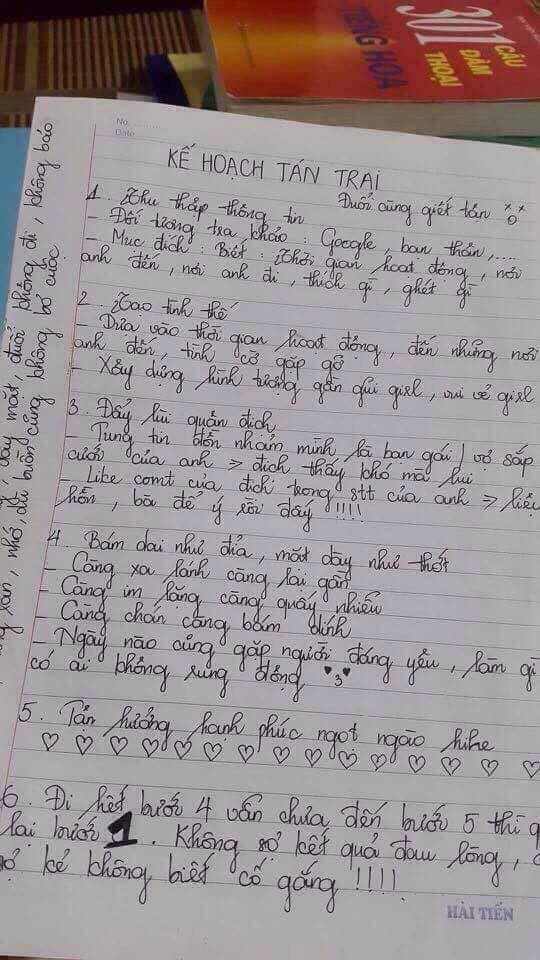 301
CÂU
ĐÀM
THOẠI
TIẾNG HOA
No.
Date
KẾ HOẠCH TÁN TRAI
1. Thu thập thông tin Đuổi cùng giết tận
- Đối tượng tra khảo : Google, bạn thân,....
- Mục đích : Biết : Thời gian hoạt động, nơi
anh đến, nơi anh đi, thích gì, ghét gì
2. Tạo tình thế
- Dựa vào thời gian hoạt động, đến những nơi
anh đến, tình cờ gặp gỡ
- Xây dựng hình tượng gần gũi girl, vui vẻ girl
3. Đẩy lùi quân địch
- Tung tin đồn nhảm mình là bạn gái / vợ sắp
cưới của anh => địch thấy khó mà lui
- Like comt của địch trong stt của anh => liệu
hồn, bà để ý rồi đấy !!!!
4. Bám dai như đỉa, mặt dày như thớt
- Càng xa lánh càng lại gần
- Càng im lặng càng quấy nhiễu
- Càng chán càng bám dính
- Ngày nào cũng gặp người đáng yêu, làm gì
có ai không rung động
5. Tận hưởng hạnh phúc ngọt ngào hihe
♡ ♡ ♡ ♡ ♡ ♡ ♡ ♡ ♡ ♡ ♡ ♡ ♡ ♡ ♡
6. Đi hết bước 4 vẫn chưa đến bước 5 thì q
lại bước 1. Không sợ kết quả đau lòng,
sợ kẻ không biết cố gắng !!!!
HẢI TIẾN
mặt, đuổi không đi, không báo
nhớ, dù buồn cũng không bỏ cuộc